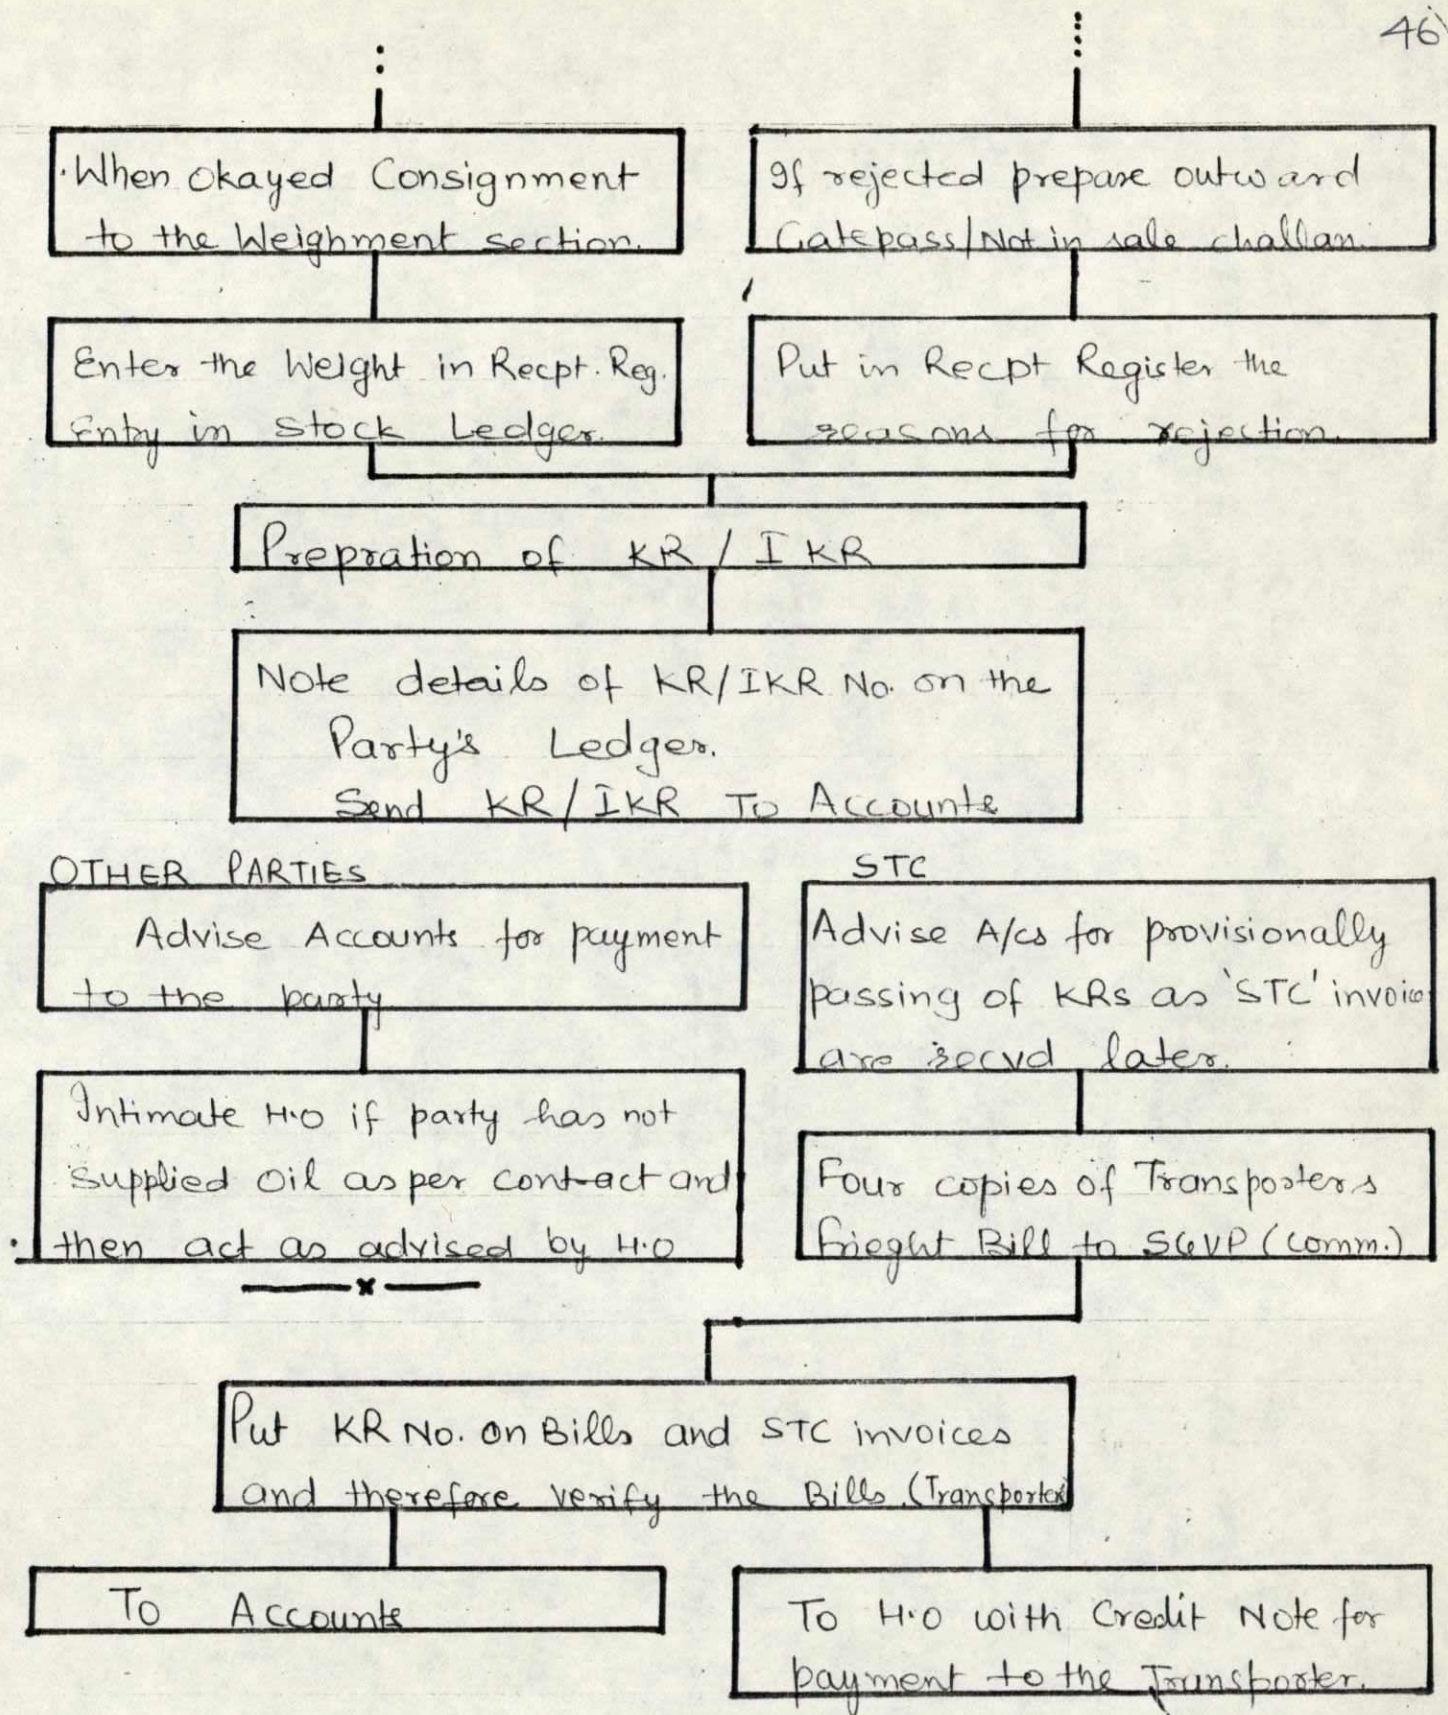 46
When Okayed Consignment
to the Weighment section.
If rejected prepare outward
Gatepass/Not in sale challan.
Enter the Weight in Recpt. Reg.
Entry in Stock Ledger.
Put in Recpt Register the
reasons for rejection.
Prepration of KR / IKR
Note details of KR/IKR No. on the
Party's Ledger.
Send KR/IKR To Accounts
OTHER PARTIES
Advise Accounts for payment
to the party
Intimate H.O if party has not
supplied Oil as per contract and
then act as advised by H.O
x
STC
Advise A/cs for provisionally
passing of KRs as 'STC' invoice
are recvd later.
Four copies of Transporters
frieght Bill to SGVP (Comm.)
Put KR No. on Bills and STC invoices
and therefore verify the Bills (Transporter)
To Accounts
To H.O with Credit Note for
payment to the Transporter.